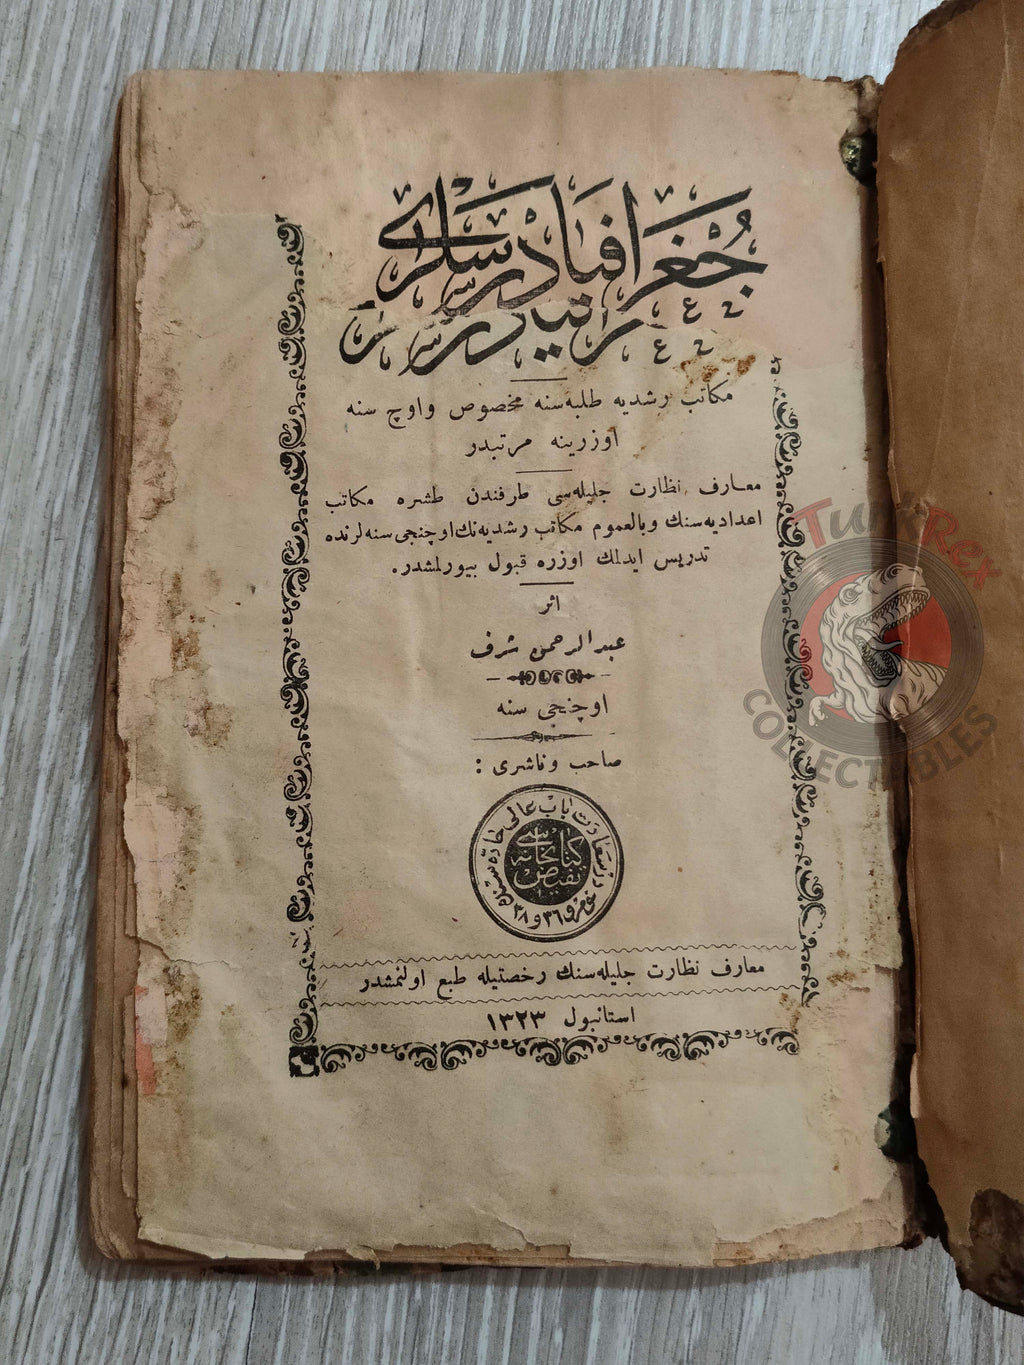 جُغْرَافيَا دَرسلَرى
مكاتب رشديه طلبه‌سنه مخصوص واوچ سنه
اوزرينه مرتبدر
معارف نظارت جليله‌سى طرفندن طشره مكاتب
اعداديه‌سنك وبالعموم مكاتب رشديه‌نك اوچنجى سنه‌لرنده
تدريس ايدلمك اوزره قبول بيورلمشدر.
اثر
عبدالرحمن شرف
اوچنجى سنه
صاحب وناشرى :
درسعادت باب عالى جاده سنده
٣٦ و ٣٨
كتابخانه سى
معارف نظارت جليله‌سنك رخصتيله طبع اولنمشدر
استانبول ١٣٢٣
TurkRex
COLLECTIBLES